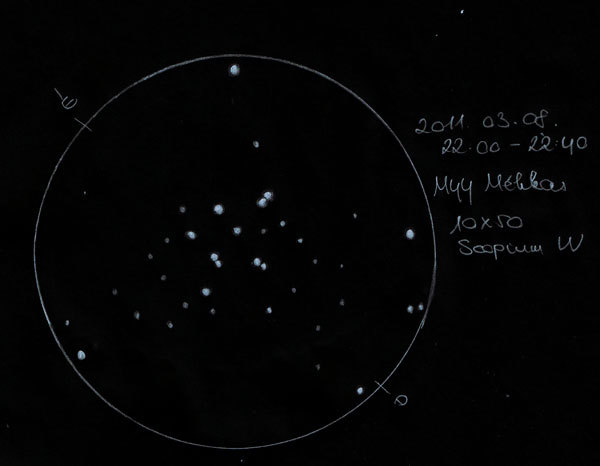 É
2011. 03. 08.
22:00 - 22:40
M44 Méhkas
10x50
Scopium W
D